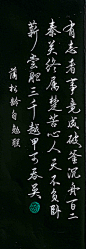 有志者事竟成破釜沉舟百二
秦关终属楚苦心人天不负卧
薪尝胆三千越甲可吞吴
蒲松龄自勉联